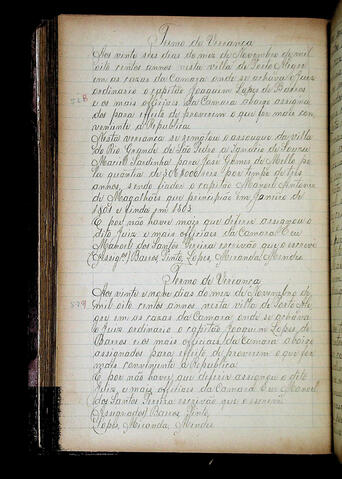 Termo de Vereança
Aos vinte seis dias do mez de Novembro de mil
oito centos annos nesta villa de Porto Alegre
em as cazas da Camara onde se achava o Juiz
ordinario o capitão Joaquim Lopes de Barros
e os mais officiaes da Camara abaixo assigna
dos para effeito de proverem o que for mais con
veniente a Republica.
Nesta vereança se rematou o assougue da villa
do Rio Grande de São Pedro a Ignacio de Souza
Maciel Sardinha para José Gomes de Mello pe
la quantia de reis por tempo de tres
annos, sendo fiador o capitão Manoel Antonio
de Magalhães que principião em Janeiro de
1801 e finda em 1803.
E por não haver mais que deferir assignou o
dito Juiz e mais officiaes da Camara Eu
Manoel dos Santos Pereira escrivão que o escrevi
(Assigos) Barros, Pinto, Lopes, Miranda, Mendes
Termo de Vereança
Aos vinte e nove dias do mez de Novembro de
mil oito centos annos, nesta villa de Porto Ale
gre em as cazas da Camara onde se achava
o Juiz ordinario o capitão Joaquim Lopes de
Barros e os mais officiaes da Camara abaixo
assignados para effeito de proverem o que for
mais conveniente a Republica.
E por não haver que deferir assignou o dito
Juiz e mais officiaes da Camara Eu Manoel
dos Santos Pereira escrivão que o escrevi
(Assignados) Barros, Pinto,
Lopes, Miranda, Mendes